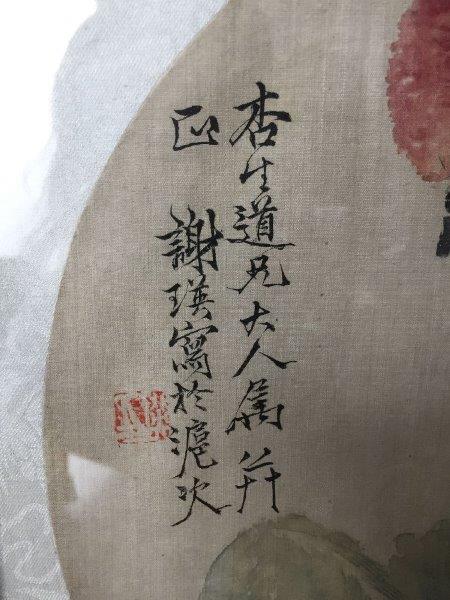 杏生道兄大人属並
正謝瑛寫於滬次